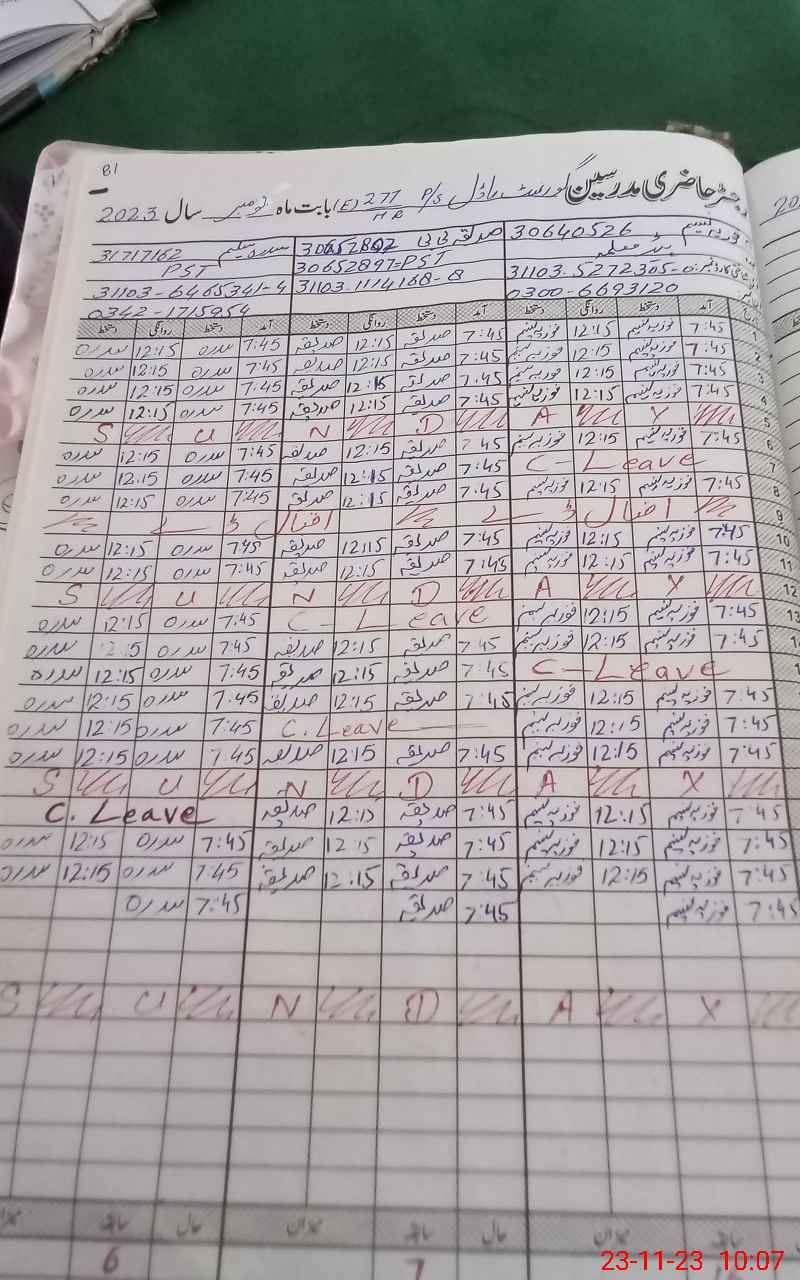 81
رجسٹر حاضری مدرسین گورنمنٹ ماڈل P/S 277/HR (E) بابت ماہ نومبر سال 2023
30640526 صدیقہ بی بی 30657802 سدرہ سلیم 31717162
ہیڈ معلمہ 30652897=PST PST
31103-5272305-0 31103-1114168-8 31103-6465341-4
0300-6693120 0342-1715954
آمد دستخط روانگی دستخط آمد دستخط روانگی دستخط آمد دستخط روانگی دستخط
1 7:45 فوزیہ نسیم 12:15 فوزیہ نسیم 7:45 صدیقہ 12:15 صدیقہ 7:45 سدرہ 12:15 سدرہ
2 7:45 فوزیہ نسیم 12:15 فوزیہ نسیم 7:45 صدیقہ 12:15 صدیقہ 7:45 سدرہ 12:15 سدرہ
3 7:45 فوزیہ نسیم 12:15 فوزیہ نسیم 7:45 صدیقہ 12:15 صدیقہ 7:45 سدرہ 12:15 سدرہ
4 7:45 فوزیہ نسیم 12:15 فوزیہ نسیم 7:45 صدیقہ 12:15 صدیقہ 7:45 سدرہ 12:15 سدرہ
5 S U N D A Y
6 7:45 فوزیہ نسیم 12:15 فوزیہ نسیم 7:45 صدیقہ 12:15 صدیقہ 7:45 سدرہ 12:15 سدرہ
7 C-Leave 7:45 صدیقہ 12:15 صدیقہ 7:45 سدرہ 12:15 سدرہ
8 7:45 فوزیہ نسیم 12:15 فوزیہ نسیم 7:45 صدیقہ 12:15 صدیقہ 7:45 سدرہ 12:15 سدرہ
9 اقبال ڈے اقبال ڈے
10 7:45 فوزیہ نسیم 12:15 فوزیہ نسیم 7:45 صدیقہ 12:15 صدیقہ 7:45 سدرہ 12:15 سدرہ
11 7:45 فوزیہ نسیم 12:15 فوزیہ نسیم 7:45 صدیقہ 12:15 صدیقہ 7:45 سدرہ 12:15 سدرہ
12 S U N D A Y
13 7:45 فوزیہ نسیم 12:15 فوزیہ نسیم C-Leave 7:45 سدرہ 12:15 سدرہ
7:45 فوزیہ نسیم 12:15 فوزیہ نسیم 7:45 صدیقہ 12:15 صدیقہ 7:45 سدرہ 12:15 سدرہ
C-Leave 7:45 صدیقہ 12:15 صدیقہ 7:45 سدرہ 12:15 سدرہ
7:45 فوزیہ نسیم 12:15 فوزیہ نسیم 7:45 صدیقہ 12:15 صدیقہ 7:45 سدرہ 12:15 سدرہ
7:45 فوزیہ نسیم 12:15 فوزیہ نسیم C.Leave 7:45 سدرہ 12:15 سدرہ
7:45 فوزیہ نسیم 12:15 فوزیہ نسیم 7:45 صدیقہ 12:15 صدیقہ 7:45 سدرہ 12:15 سدرہ
S U N D A Y
7:45 فوزیہ نسیم 12:15 فوزیہ نسیم 7:45 صدیقہ 12:15 صدیقہ C. Leave
7:45 فوزیہ نسیم 12:15 فوزیہ نسیم 7:45 صدیقہ 12:15 صدیقہ 7:45 سدرہ 12:15 سدرہ
7:45 فوزیہ نسیم 12:15 فوزیہ نسیم 7:45 صدیقہ 12:15 صدیقہ 7:45 سدرہ 12:15 سدرہ
7:45 فوزیہ نسیم 7:45 صدیقہ 7:45 سدرہ
S U N D A Y
حال سابقہ میزان حال سابقہ میزان
7 6
23-11-23 10:07